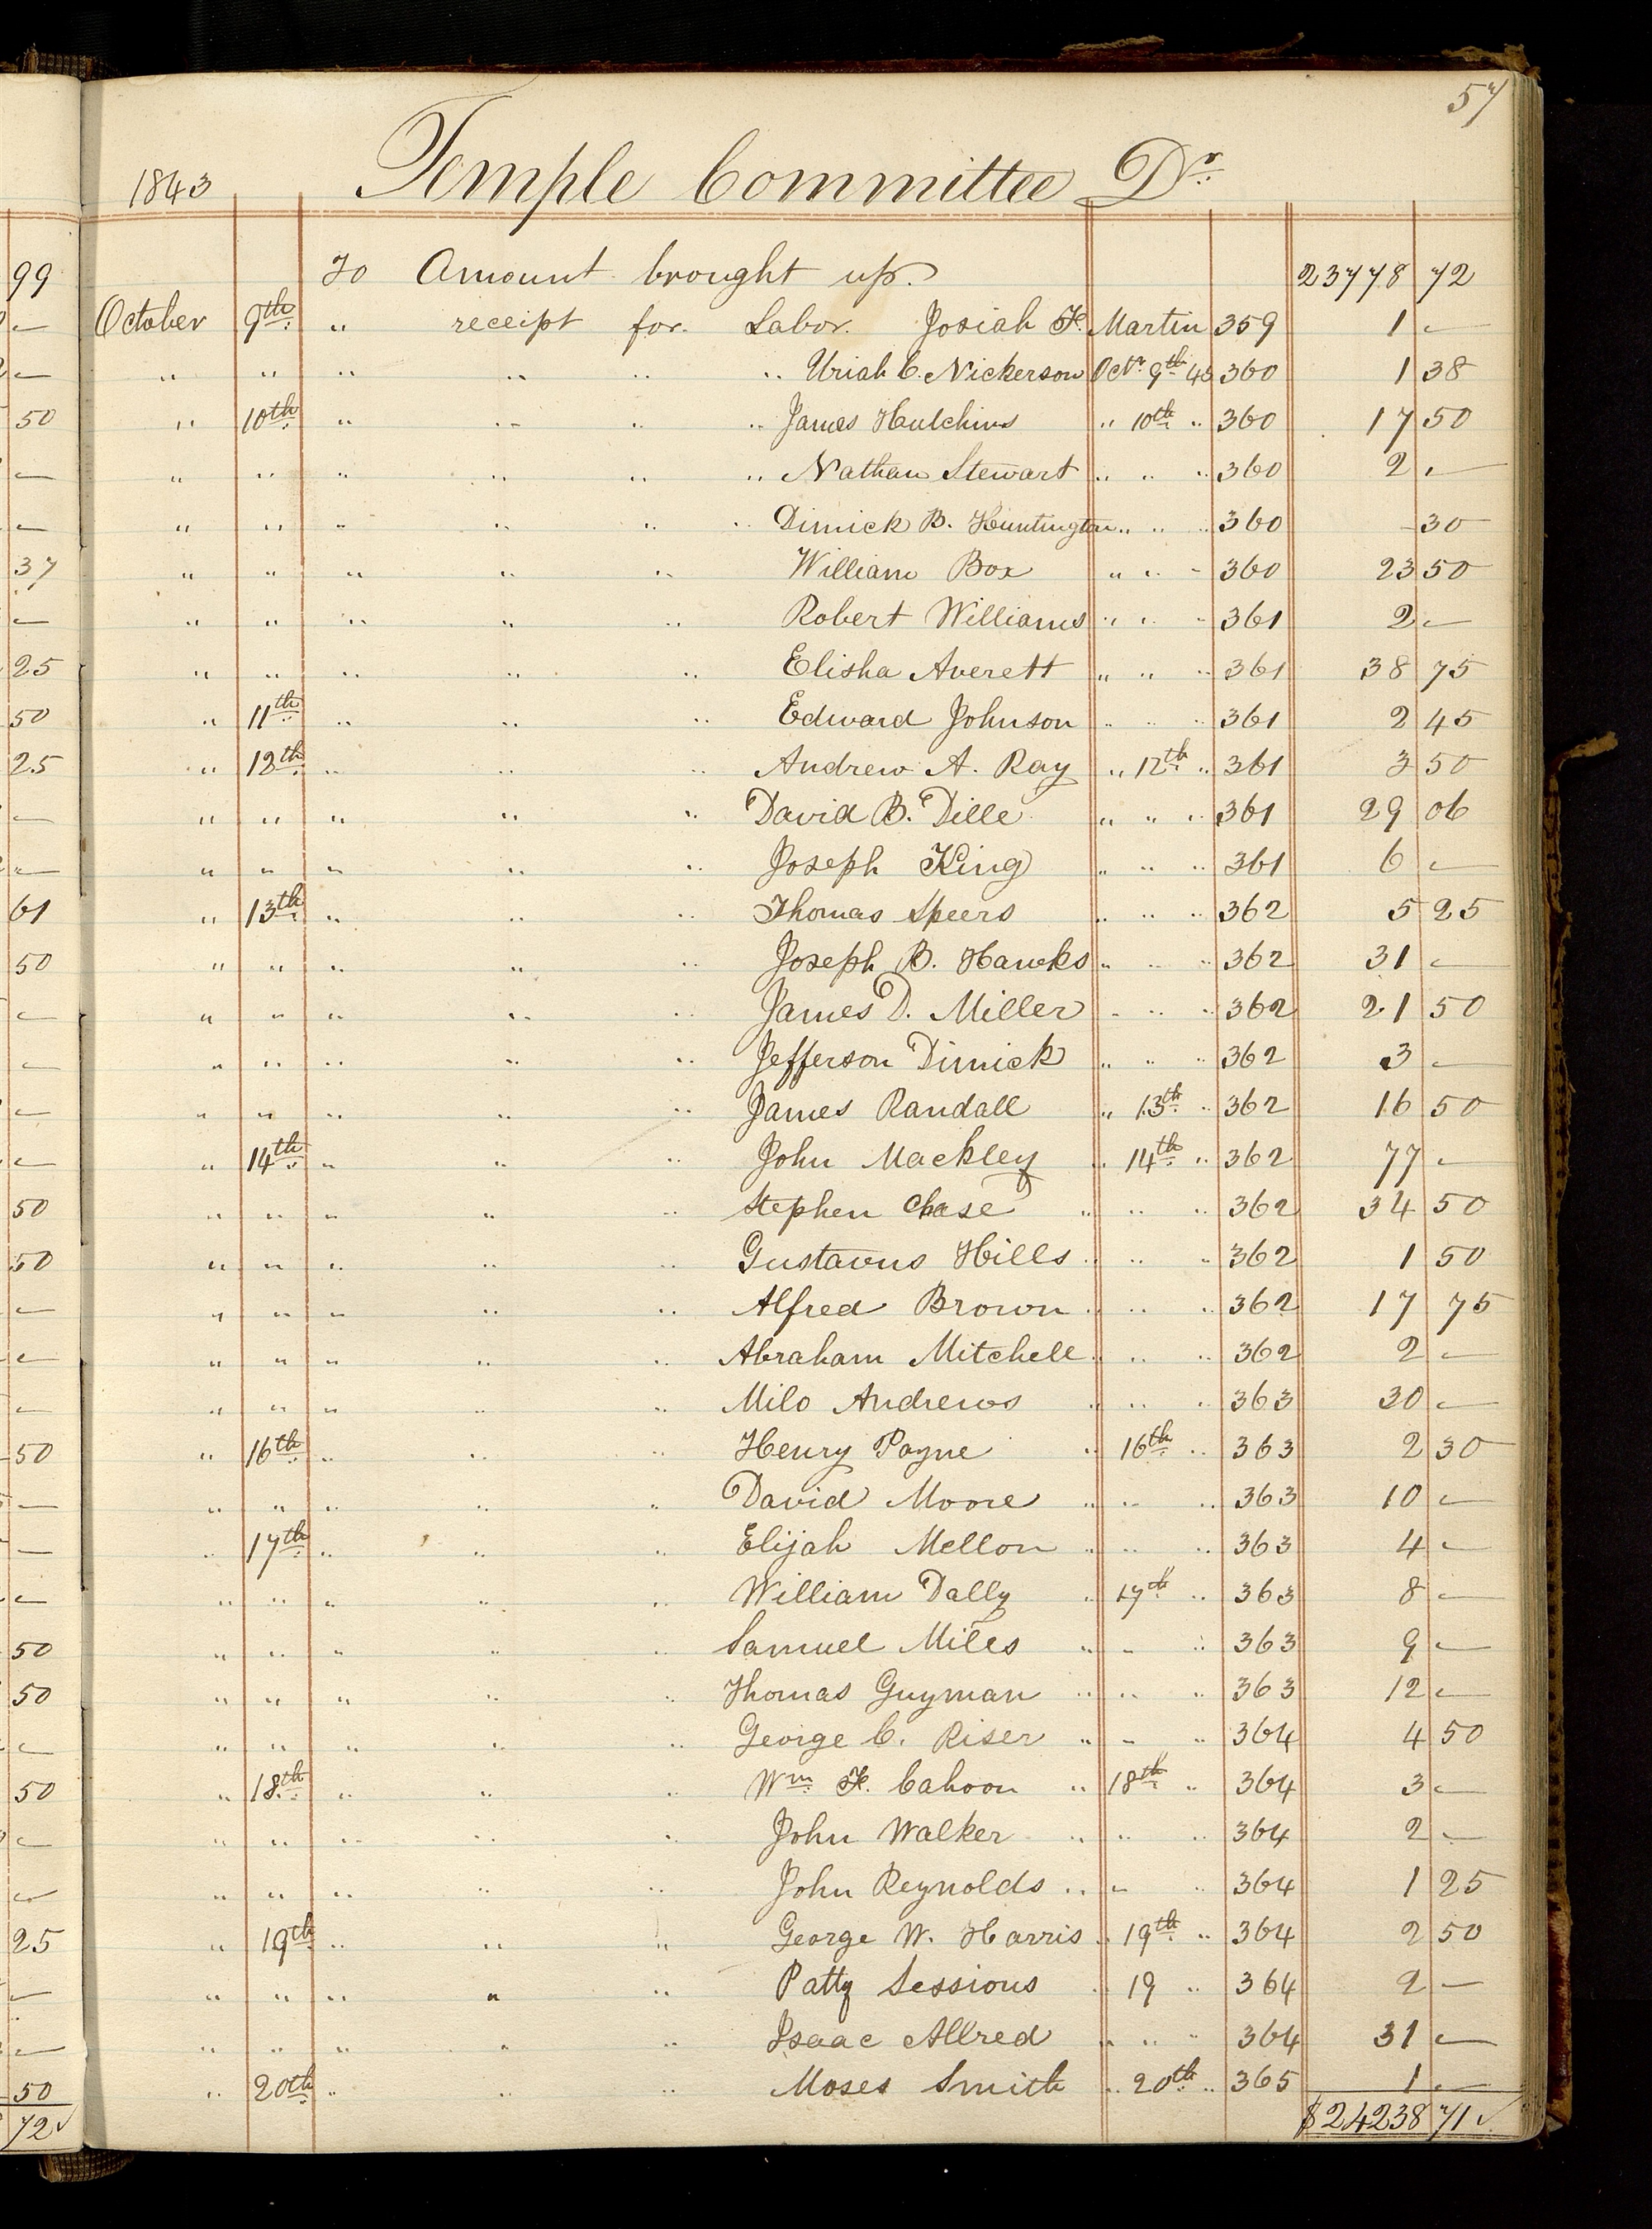 57
1843 Temple Committee Dr.
To Amount brought up. 23778 72
October 9th " receipt for Labor. Josiah F. Martin 359 1 —
" " " " " " Uriah C. Nickerson Octr 9th 43 360 1 38
" 10th " " " " James Hutchins " 10th " 360 17 50
" " " " " " Nathan Stewart " " " 360 2 —
" " " " " " Dimick B. Huntington " " " 360 - 30
" " " " " William Box " " " 360 23 50
" " " " " Robert Williams " " " 361 2 —
" " " " " Elisha Averett " " " 361 38 75
" 11th " " " Edward Johnson " " " 361 2 45
" 12th " " " Andrew A. Ray " 12th " 361 3 50
" " " " " David B. Dille " " " 361 29 06
" " " " " Joseph King " " " 361 6 —
" 13th " " " Thomas Speers " " " 362 5 25
" " " " " Joseph B. Hawks " " " 362 31 —
" " " " " James D. Miller " " " 362 21 50
" " " " " Jefferson Dimick " " " 362 3 —
" " " " " James Randall " 13th " 362 16 50
" 14th " " " John Mackley " 14th " 362 77 —
" " " " " Stephen Chase " " " 362 34 50
" " " " " Gustavus Hills " " " 362 1 50
" " " " " Alfred Brown " " " 362 17 75
" " " " " Abraham Mitchell " " " 362 2 —
" " " " " Milo Andrews " " " 363 30 —
" 16th " " " Henry Payne " 16th " 363 2 30
" " " " " David Moore " " " 363 10 —
" 17th " " " Elijah Mellon " " " 363 4 —
" " " " " William Dally " 17th " 363 8 —
" " " " " Samuel Miles " " " 363 9 —
" " " " " Thomas Guyman " " " 363 12 —
" " " " " George C. Riser " " " 364 4 50
" 18th " " " Wm F. Cahoon " 18th " 364 3 —
" " " " " John Walker " " " 364 2 —
" " " " " John Reynolds " " " 364 1 25
" 19th " " " George W. Harris " 19th " 364 2 50
" " " " " Patty Sessions " 19 " 364 2 —
" " " " " Isaac Allred " " " 364 31 —
" 20th " " " Moses Smith " 20th " 365 1 —
$24238 71 ✓
99
—
—
50
—
—
37
—
25
50
25
—
—
61
50
—
—
—
—
50
50
—
—
—
50
—
—
—
50
50
—
50
—
—
25
—
—
50
72 ✓